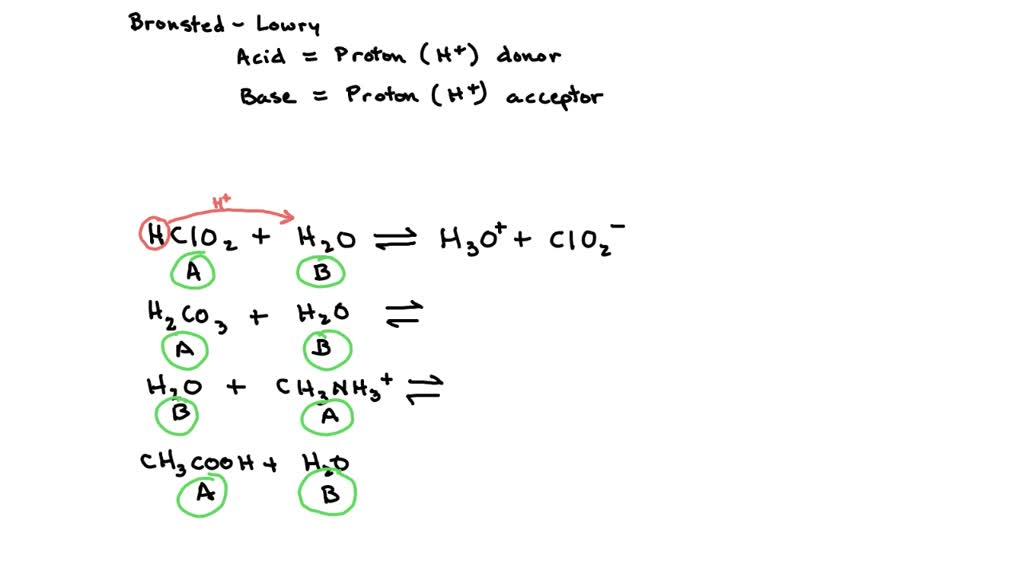 Bronsted - Lowry
Acid = Proton (H⁺) donor
Base = Proton (H⁺) acceptor
H⁺
HClO₂ + H₂O ⇌ H₃O⁺ + ClO₂⁻
A B
H₂CO₃ + H₂O ⇌
A B
H₂O + CH₃NH₃⁺ ⇌
B A
CH₃COOH + H₂O
A B